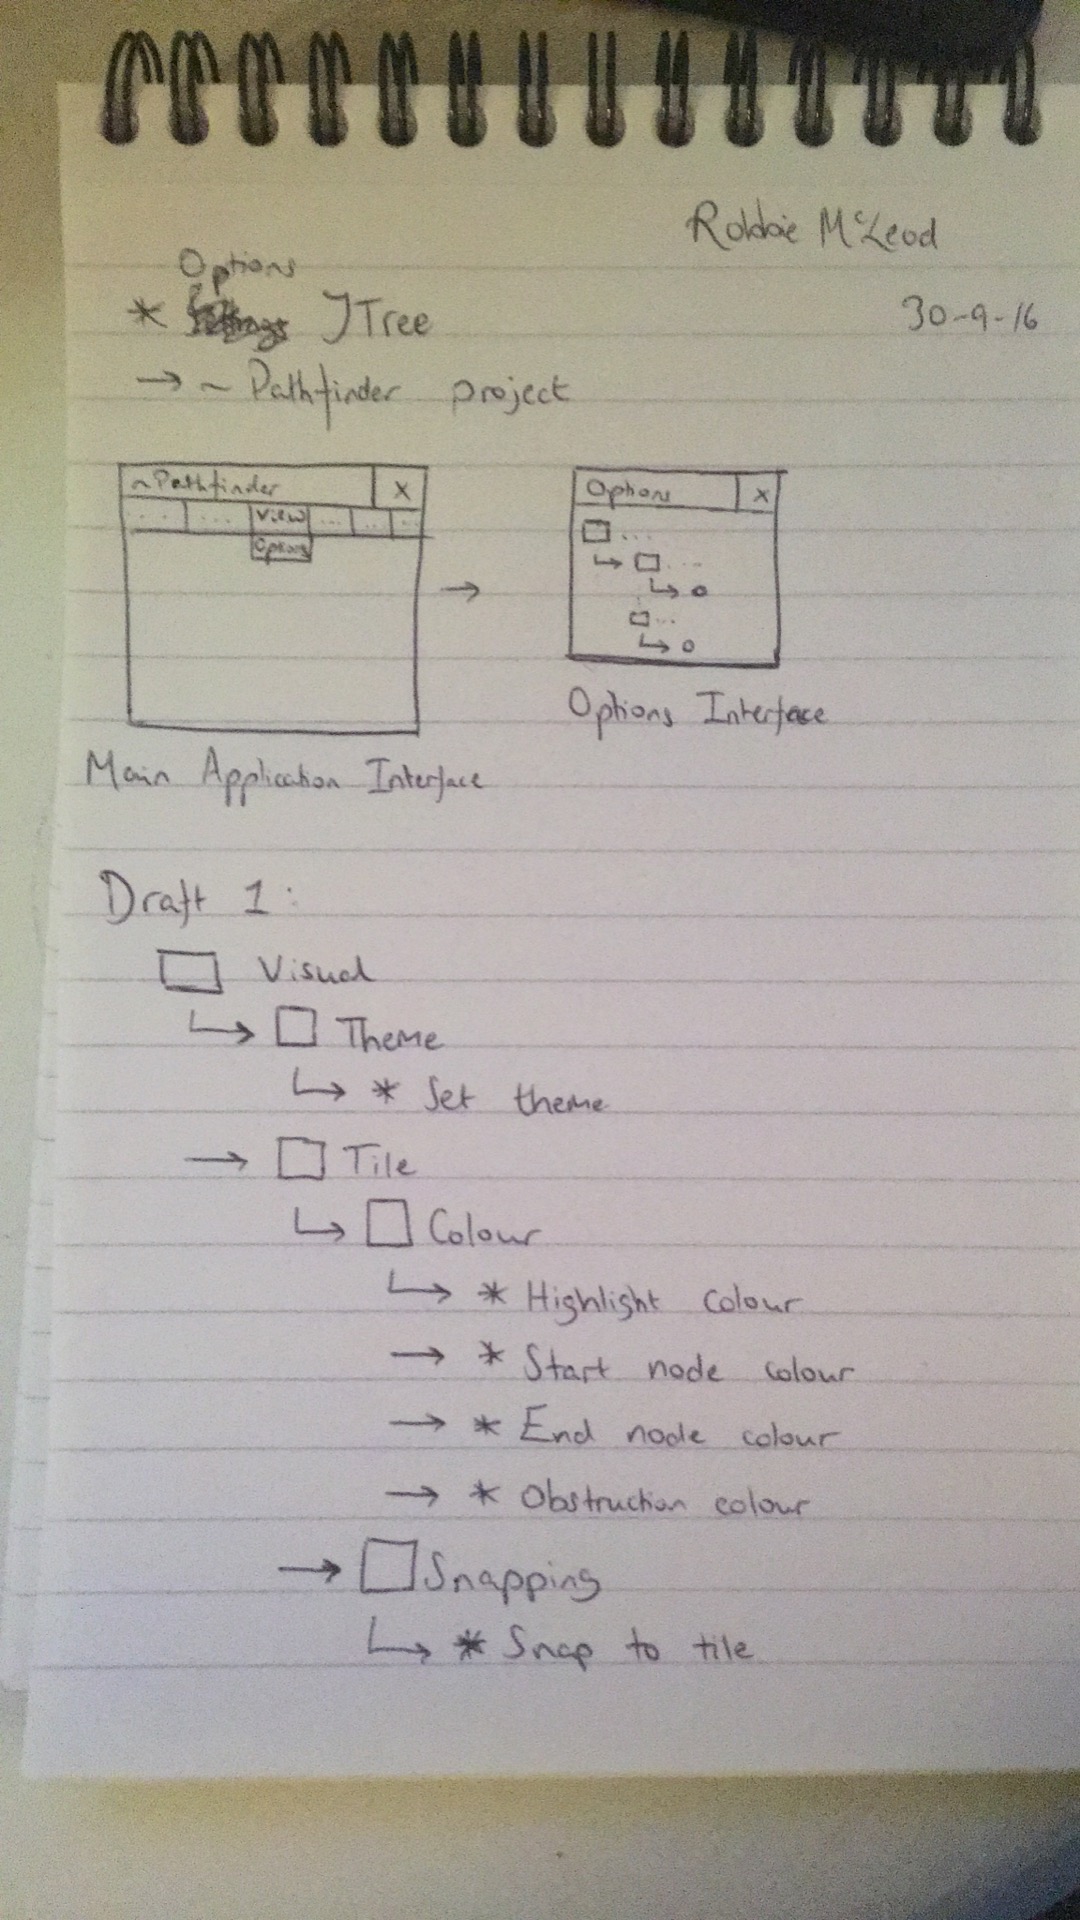 Robbie McLeod
Options
* Settings JTree
30-9-16
→ ~ Pathfinder project
~Pathfinder X
... ... View ... ... ...
Options
→
Options X
...
↳ ...
↳
...
↳
Options Interface
Main Application Interface
Draft 1:
Visual
↳ Theme
↳ * Set theme
→ Tile
↳ Colour
↳ * Highlight colour
→ * Start node colour
→ * End node colour
→ * Obstruction colour
→ Snapping
↳ * Snap to tile